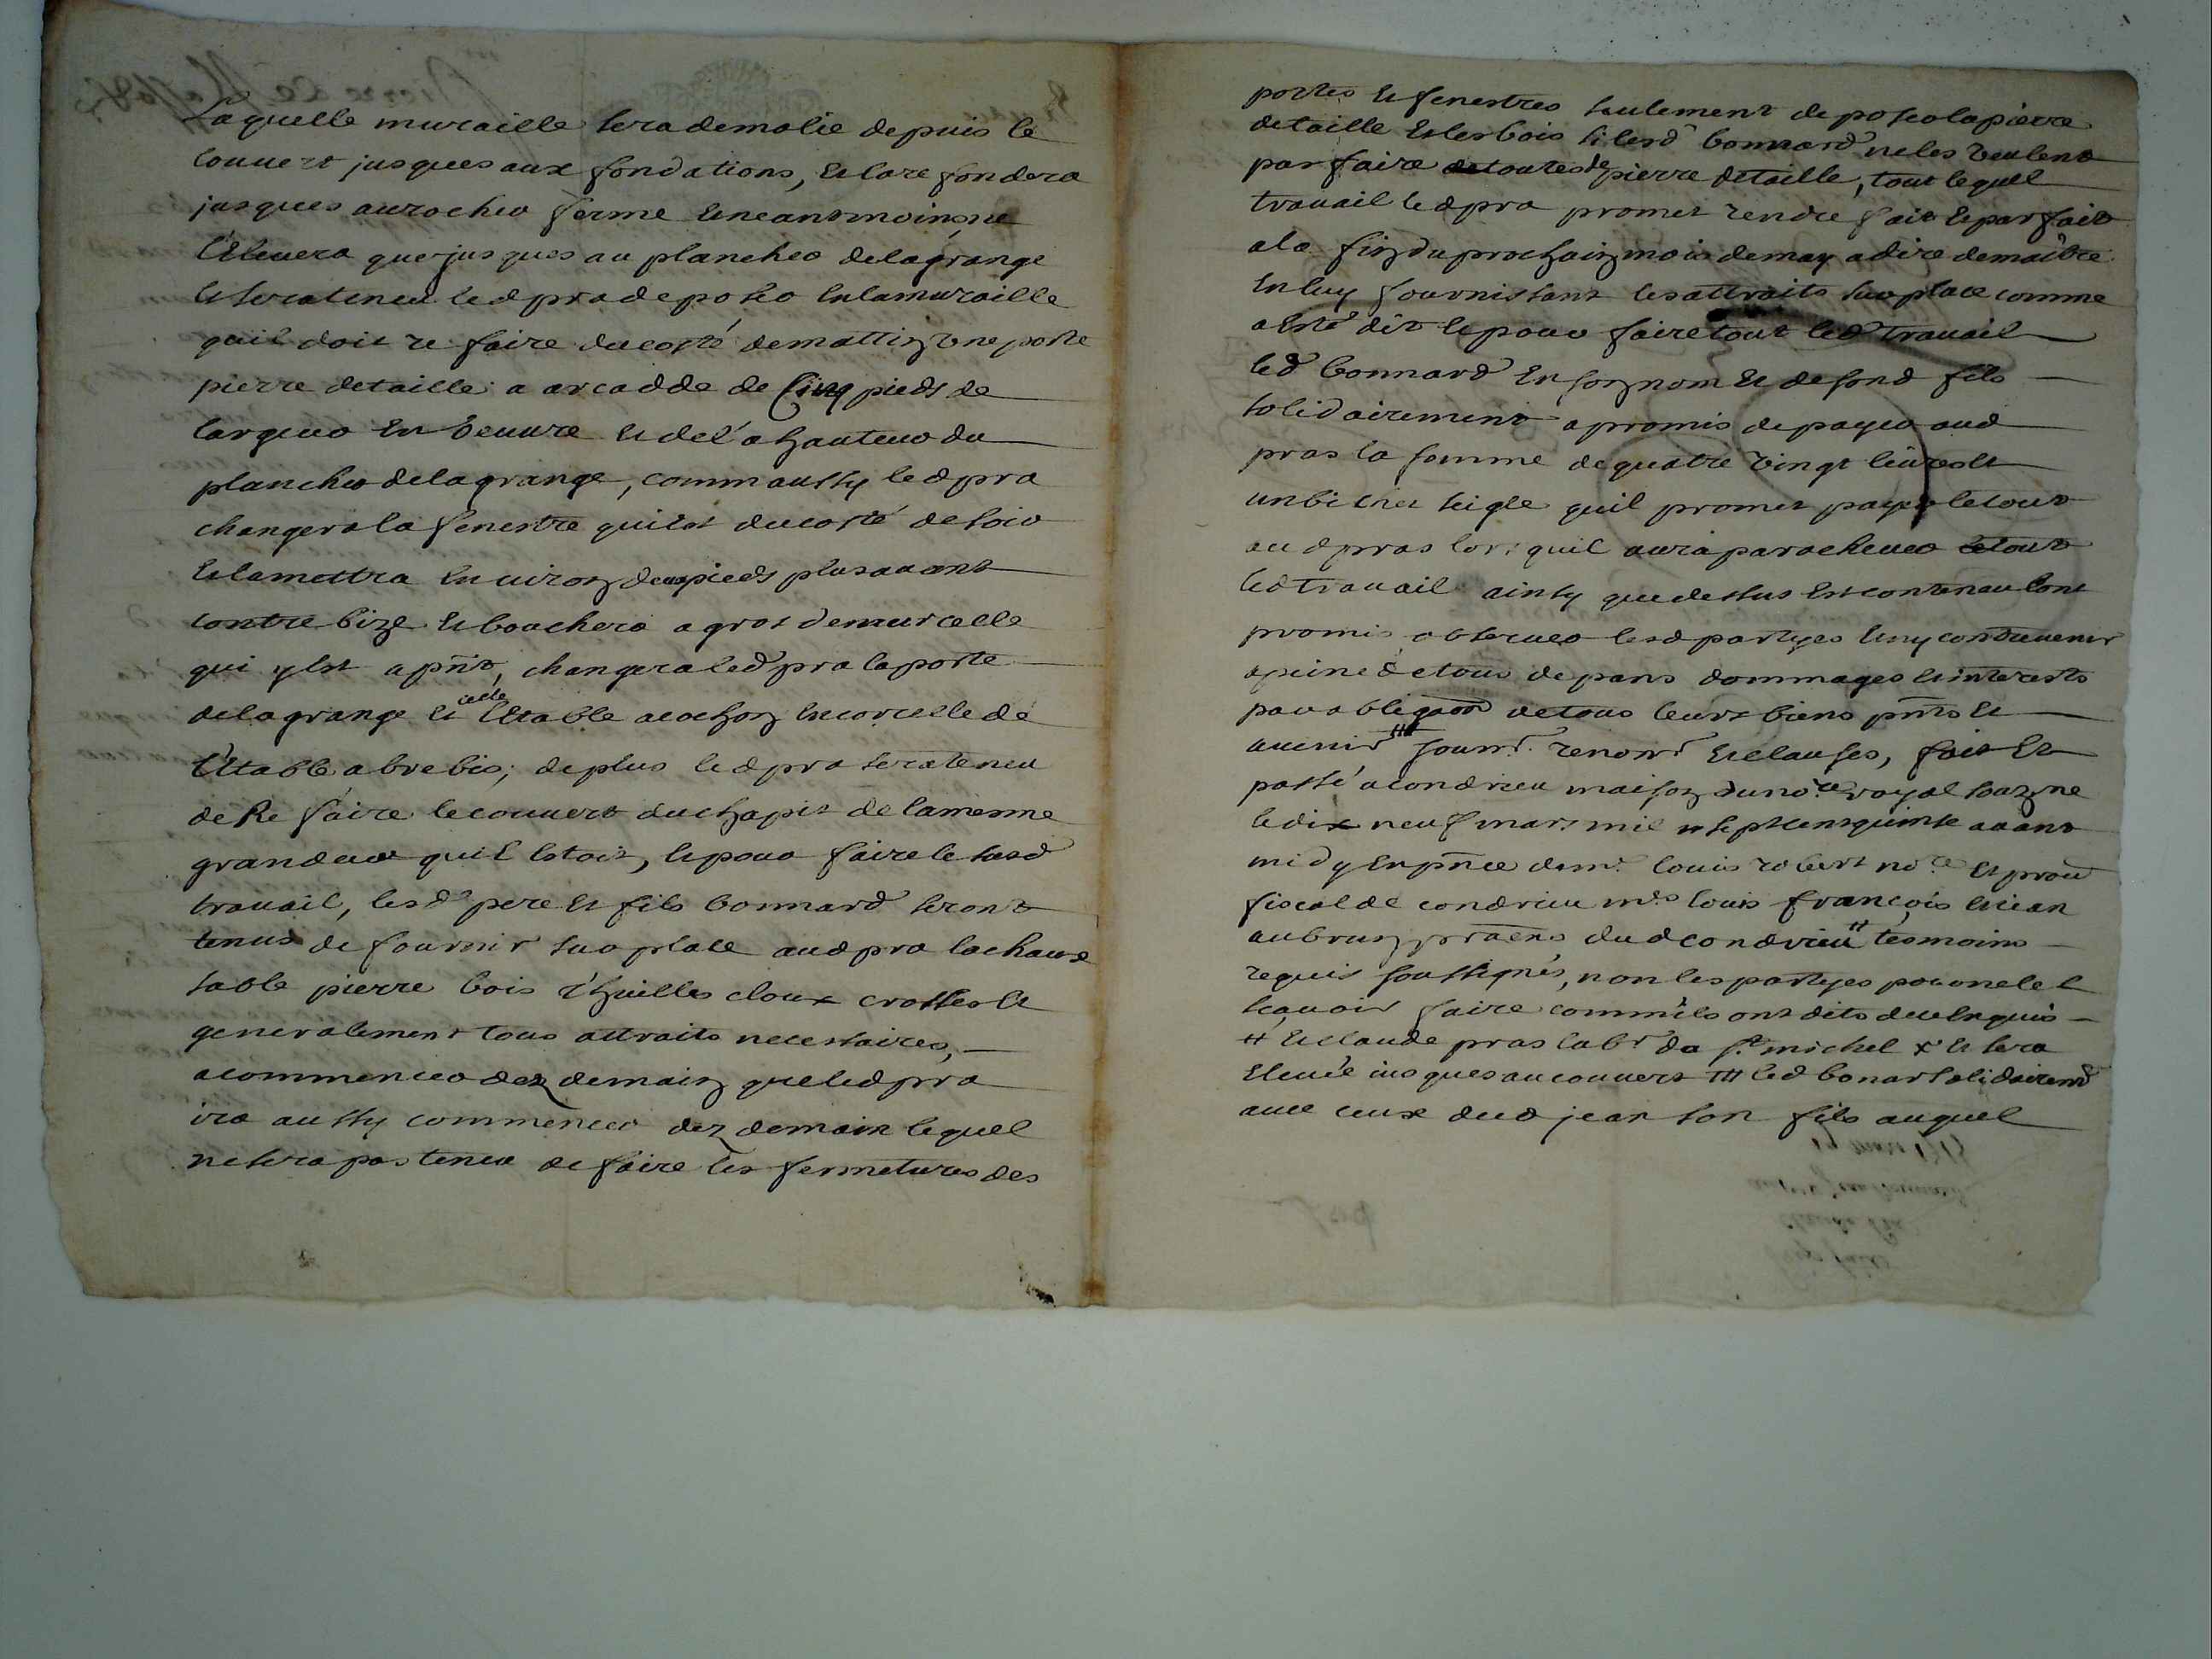 Laquelle muraille sera demolie depuis le
couuert jusques aux fondations, et la re fondera
jusques au rocher ferme et neantmoins ne
l'éleuera que jusques au plancher de la grange
et sera teneu led pra de poser en la muraille
quil doit re faire du costé de mattin une porte
pierre de taille a arcadde de Cinq pieds de
largeur en veuure et de l'a hauteur du
plancher de la grange, comm aussy led pra
changera la fenestre qui est du costé de soir
et la mettra enuiron deux pieds plus auant
contre bize et bouchera a gros de murcelle
qui y est a pñt, changera led pra la porte
de la grange et celle l'etable a cochon
l'étable a brebis; de plus led pra sera teneu
de Re faire le couuert du chapit de la mesme
grandeur quil estoit, et pour faire le susd
trauail, lesd pere et fils bonnard seront
tenus de fournir sur place aud pra la chaux
sable pierre bois thuilles cloux crosses et
generalement tous attraits necessaires,
a commencer dez demain que led pra
ira aussy commencer dez demain lequel
ne sera pas teneu de faire les fermetures des
portes et fenestres seulement de poser la pierre
de taille et les bois si lesd bonnard ne les veulent
par faire de toutes de pierre de taille, tout lequel
trauail led pra promet rendre fait et par fait
a la fin du prochain mois de may a dire de maître
en luy fournissant les attraits sur place comme
a esté dit et pour faire tout led trauail
led bonnard en son nom et de sond fils
solidairement a promis de payer aud
pras la somme de quatre vingt liures et
un bichet seigle quil promet payer le tout
aud pras lors quil aura paracheuer le tout
led trauail ainsy que dessus est conteneu sont
promis obseruer lesd partyes et ny contreuenir
a peine de tous depans dommages et interests
par obligaon de tous leurs biens pñts et
auenir ### soum. renon. et clauses, fait et
passé a condrieu maison du no.re royal souz.ne
le dix neuf mars mil sept cents quinse auant
midy en pñce de m.r louis robert no.re et procu
fiscal de condrieu m.rs louis françois et jean
aubrun praens dud condrieu # tesmoins
requis soussignés, non les partyes pour ne le
scauoir faire comm'ils ont dits de ce enquis
# et claude pras lab.r da s.t michel x et sera
eleuée jusques au couuert ### led bonar solidairemt
auec ceux dud jean son fils auquel